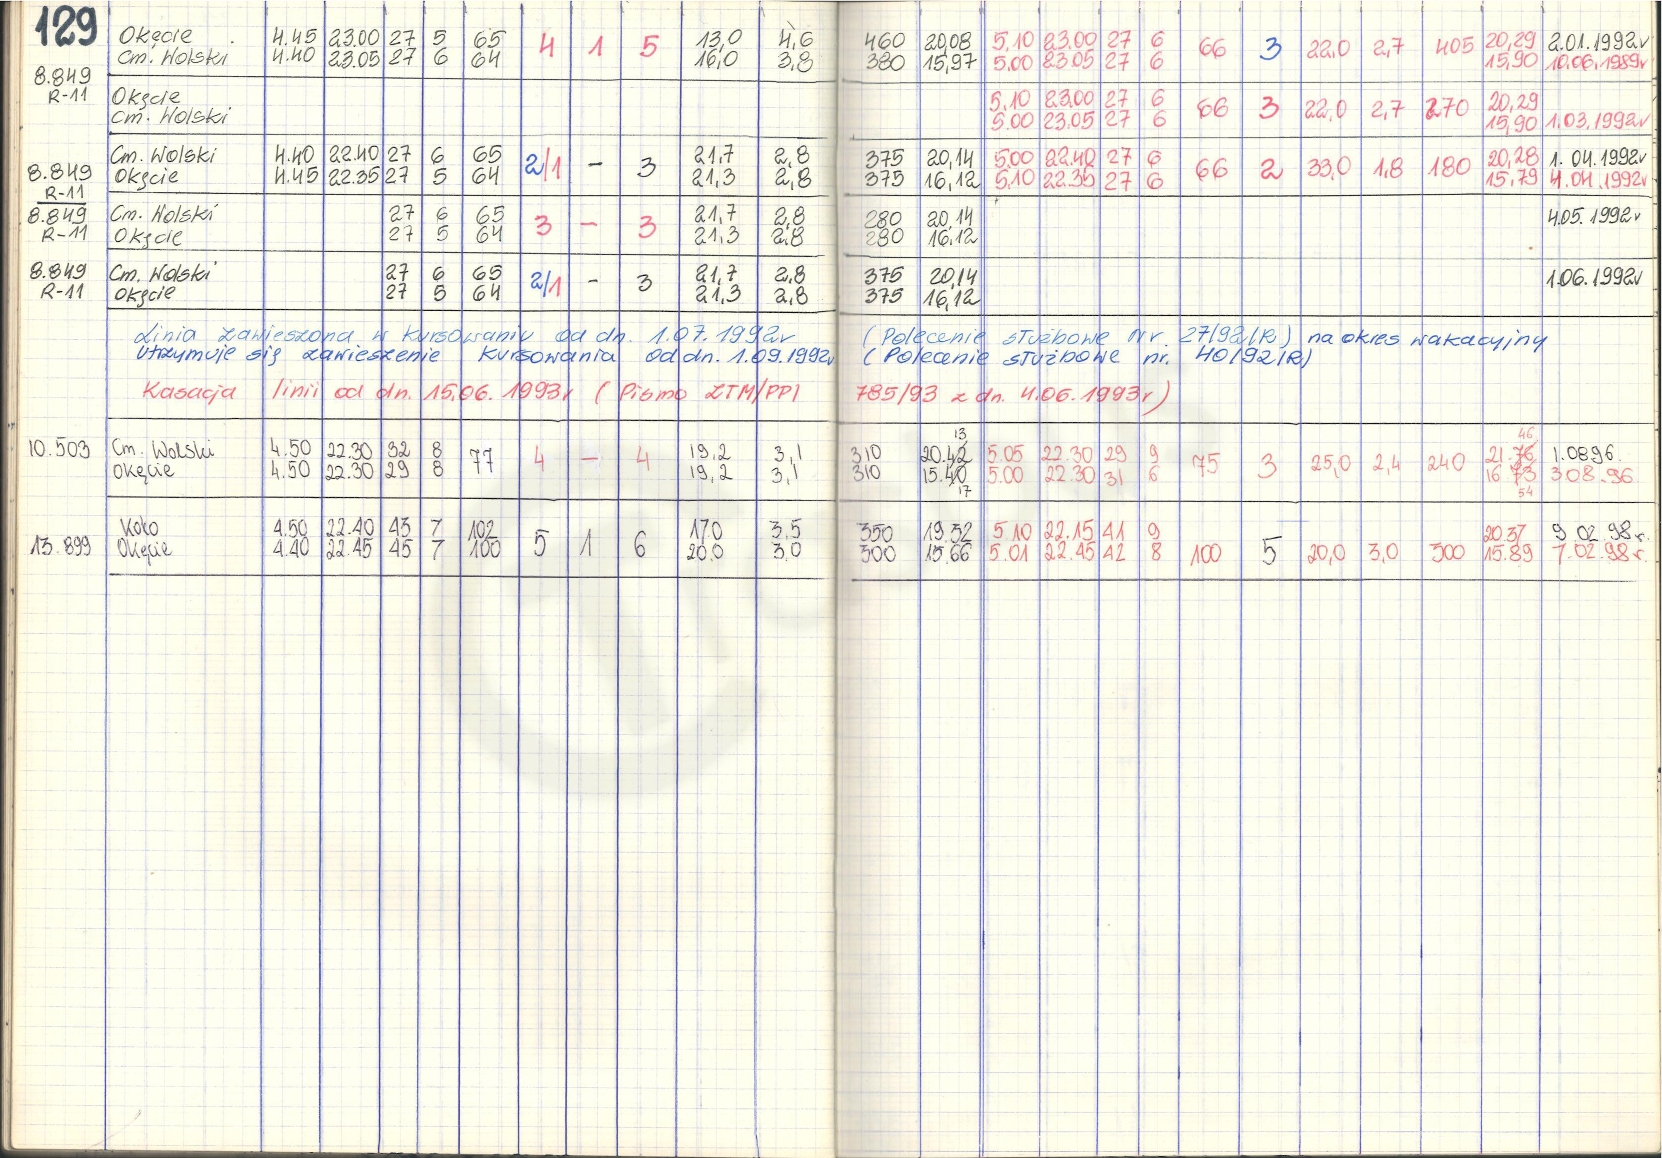 129
Okęcie 4.45 23.00 27 5 65 4 1 5 13,0 4,6 460 20,08 5.10 23.00 27 6 66 3 22,0 2,7 405 20,29 2.01.1992r
Cm. Wolski 4.40 23.05 27 6 64 16,0 3,8 380 15,97 5.00 23.05 27 6 15,90 10.06.1989r
8.849
R-11
Okęcie 5.10 23.00 27 6 66 3 22,0 2,7 270 20,29
Cm. Wolski 5.00 23.05 27 6 15,90 1.03.1992r
Cm. Wolski 4.40 22.40 27 6 65 2/1 - 3 21,7 2,8 375 20,14 5.00 22.40 27 6 66 2 33,0 1,8 180 20,28 1.04.1992r
8.849 Okęcie 4.45 22.35 27 5 64 21,3 2,8 375 16,12 5.10 22.35 27 6 15,79 4.04.1992r
R-11
8.849 Cm. Wolski 27 6 65 3 - 3 21,7 2,8 280 20,14 4.05.1992r
R-11 Okęcie 27 5 64 21,3 2,8 280 16,12
8.849 Cm. Wolski 27 6 65 2/1 - 3 21,7 2,8 375 20,14 1.06.1992r
R-11 Okęcie 27 5 64 21,3 2,8 375 16,12
Linia zawieszona w kursowaniu od dn. 1.07.1992r (Polecenie służbowe Nr. 27/92/R) na okres wakacyjny
Utrzymuje się zawieszenie kursowania od dn. 1.09.1992r (Polecenie służbowe nr. 40/92/R)
Kasacja linii od dn. 15.06.1993r (Pismo ZTM/PP/ 785/93 z dn. 4.06.1993r)
13 46
10.503 Cm. Wolski 4.50 22.30 32 8 77 4 - 4 19,2 3,1 310 20.42 5.05 22.30 29 9 75 3 25,0 2,4 240 21.76 1.08 96.
Okęcie 4.50 22.30 29 8 19,2 3,1 310 15.40 5.00 22.30 31 6 16 73 3 08.96
17 54
Koło 4.50 22.40 43 7 102 5 1 6 17.0 3.5 350 19.32 5.10 22.15 41 9 100 5 20,0 3,0 300 20.37 9 02.98r.
13.899 Okęcie 4.40 22.45 45 7 100 20.0 3.0 300 15.66 5.01 22.45 42 8 15.89 7.02.98r.